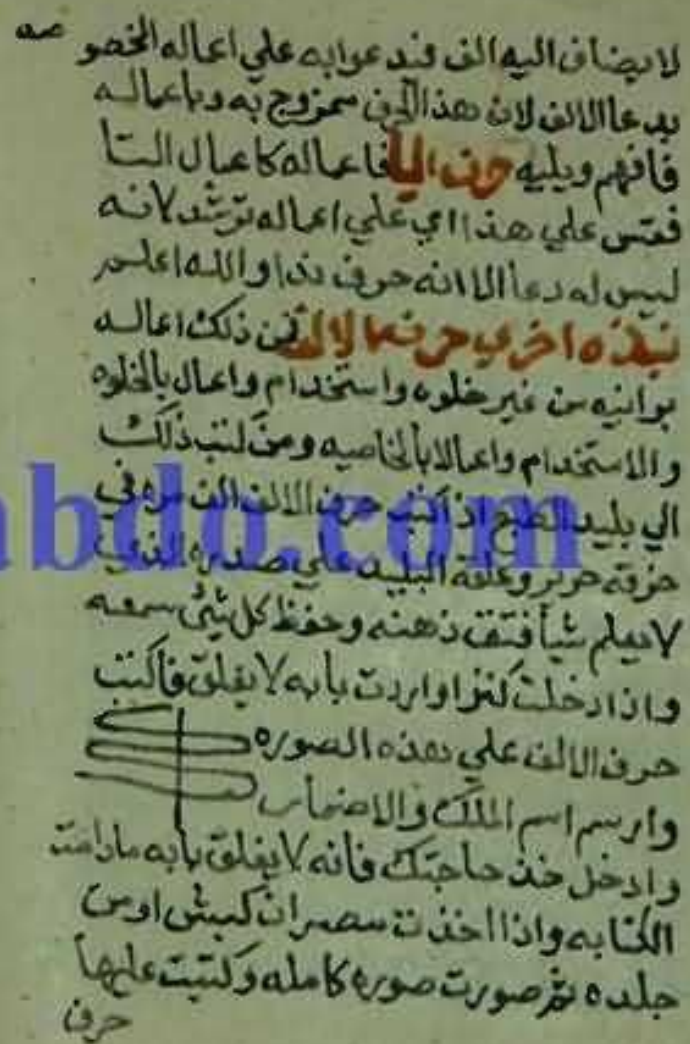 لا يضاف اليه الف فتدعوا به علي اعماله
بدعا الالف لان هذا ممزوج به وباعماله
فافهم ويليه حرف اليا فاعماله كاعمال التا
فقس علي هذا اي علي اعماله ترشد لانه
ليس له دعا الا انه حرف ندا والله اعلم
نبذه اخري لالف فمن ذلك اعماله
برانيه من غير خلوه واستخدام واعمال بالخلوه
والاستخدام واعمالا بالخاصيه ومن ذلك
الي بليد الطبع اذ اكتب حرف الالف الف مره في
خرقة حرير وعلقه البليد علي صدره الذي
لا يعلم شيأ فتق ذهنه وحفظ كل شئ سمعه
واذا دخلت كنزا واردت بابه لا يغلق فاكتب
حرف الالف علي هذه الصوره
وارسم اسم الملك والاضمار
وادخل خذ حاجتك فانه لا يغلق بابه مادامت
الكتابه واذا اخذت مصران كبش او من
جلده ثم صورت صوره كامله وكتبت عليها
حرف
abdo.com